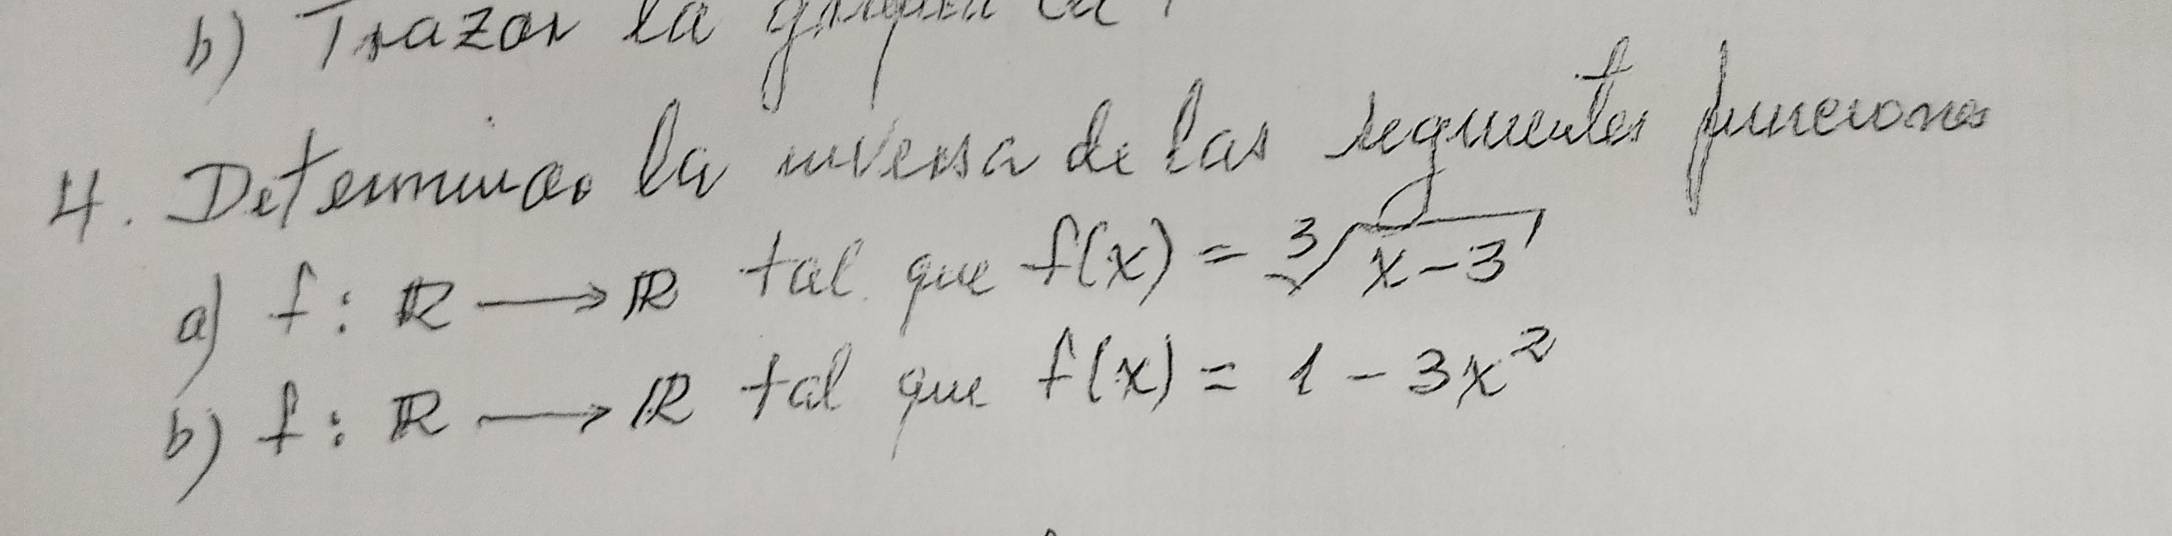 b) Trazar la
4. Determinar la inversa de las siguientes funciones
a) f: ℝ ⟶ ℝ tal que f(x) = ∛(x-3)
b) f: ℝ ⟶ ℝ tal que f(x) = 1 - 3x²